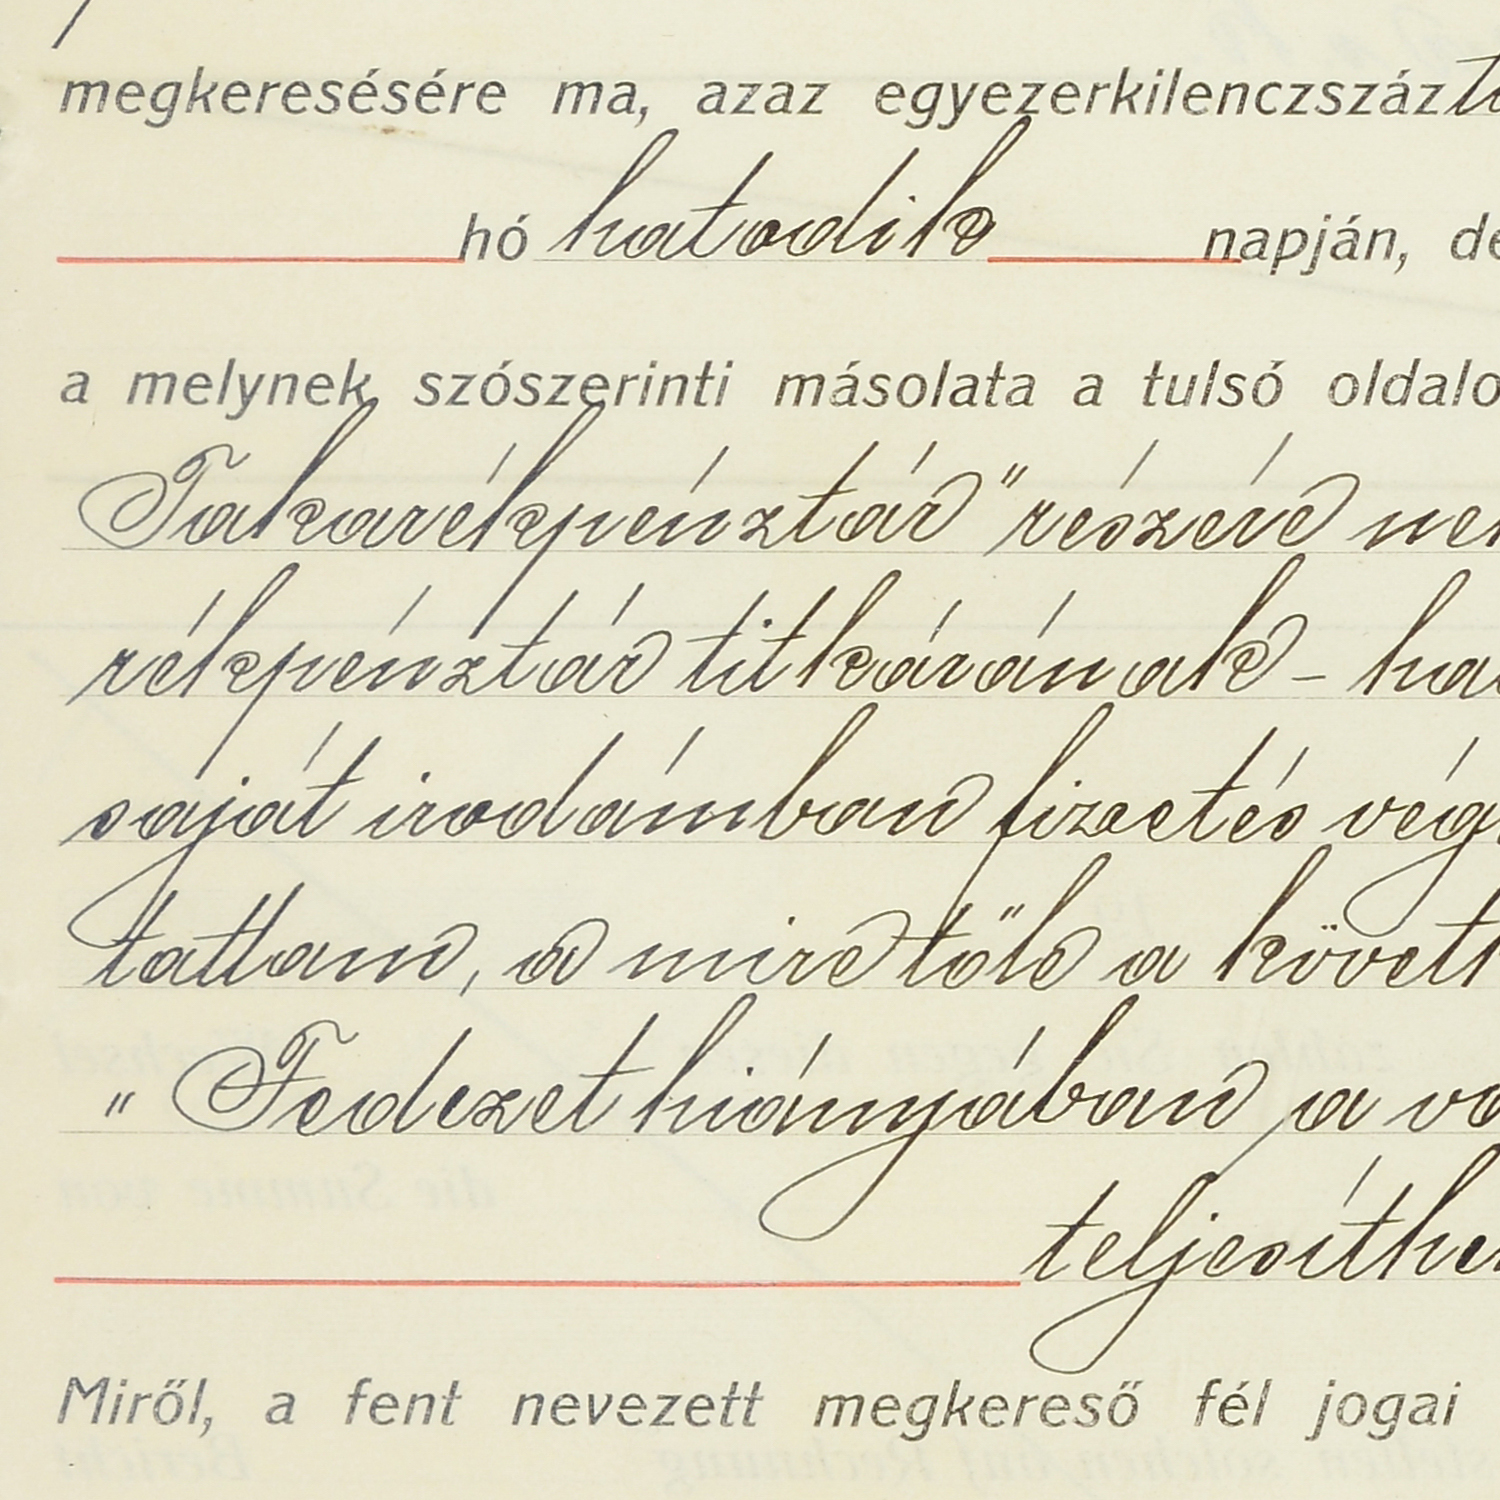 megkeresésére ma, azaz egyezerkilenczszáz
hó hatodik napján,
a melynek szószerinti másolata a tulsó
Takarékpénztár" részére
rékpénztár titkárának -
saját irodámban fizetés
tattam, a mire tőle a
„ Fedezet hiányában a
Miről, a fent nevezett megkereső fél jogai